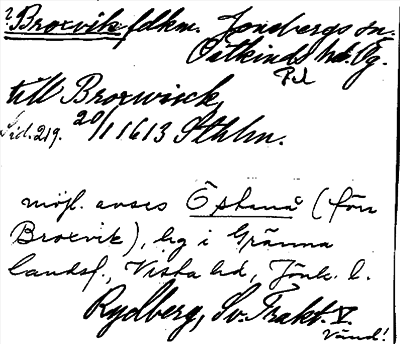 ? Broxvik fdkm. Jonsbergs sn.
Östkinds hd. Ög.
Pd
till Broxwisck
Sid. 219. 20/1 1613 Sthlm.
möjl. avses Öphanå (för
Broxvik), hg i Gränna
landsf., Vista hd, Jönk. l.
Rydberg, Sv. Trakt. V.
Vänd!